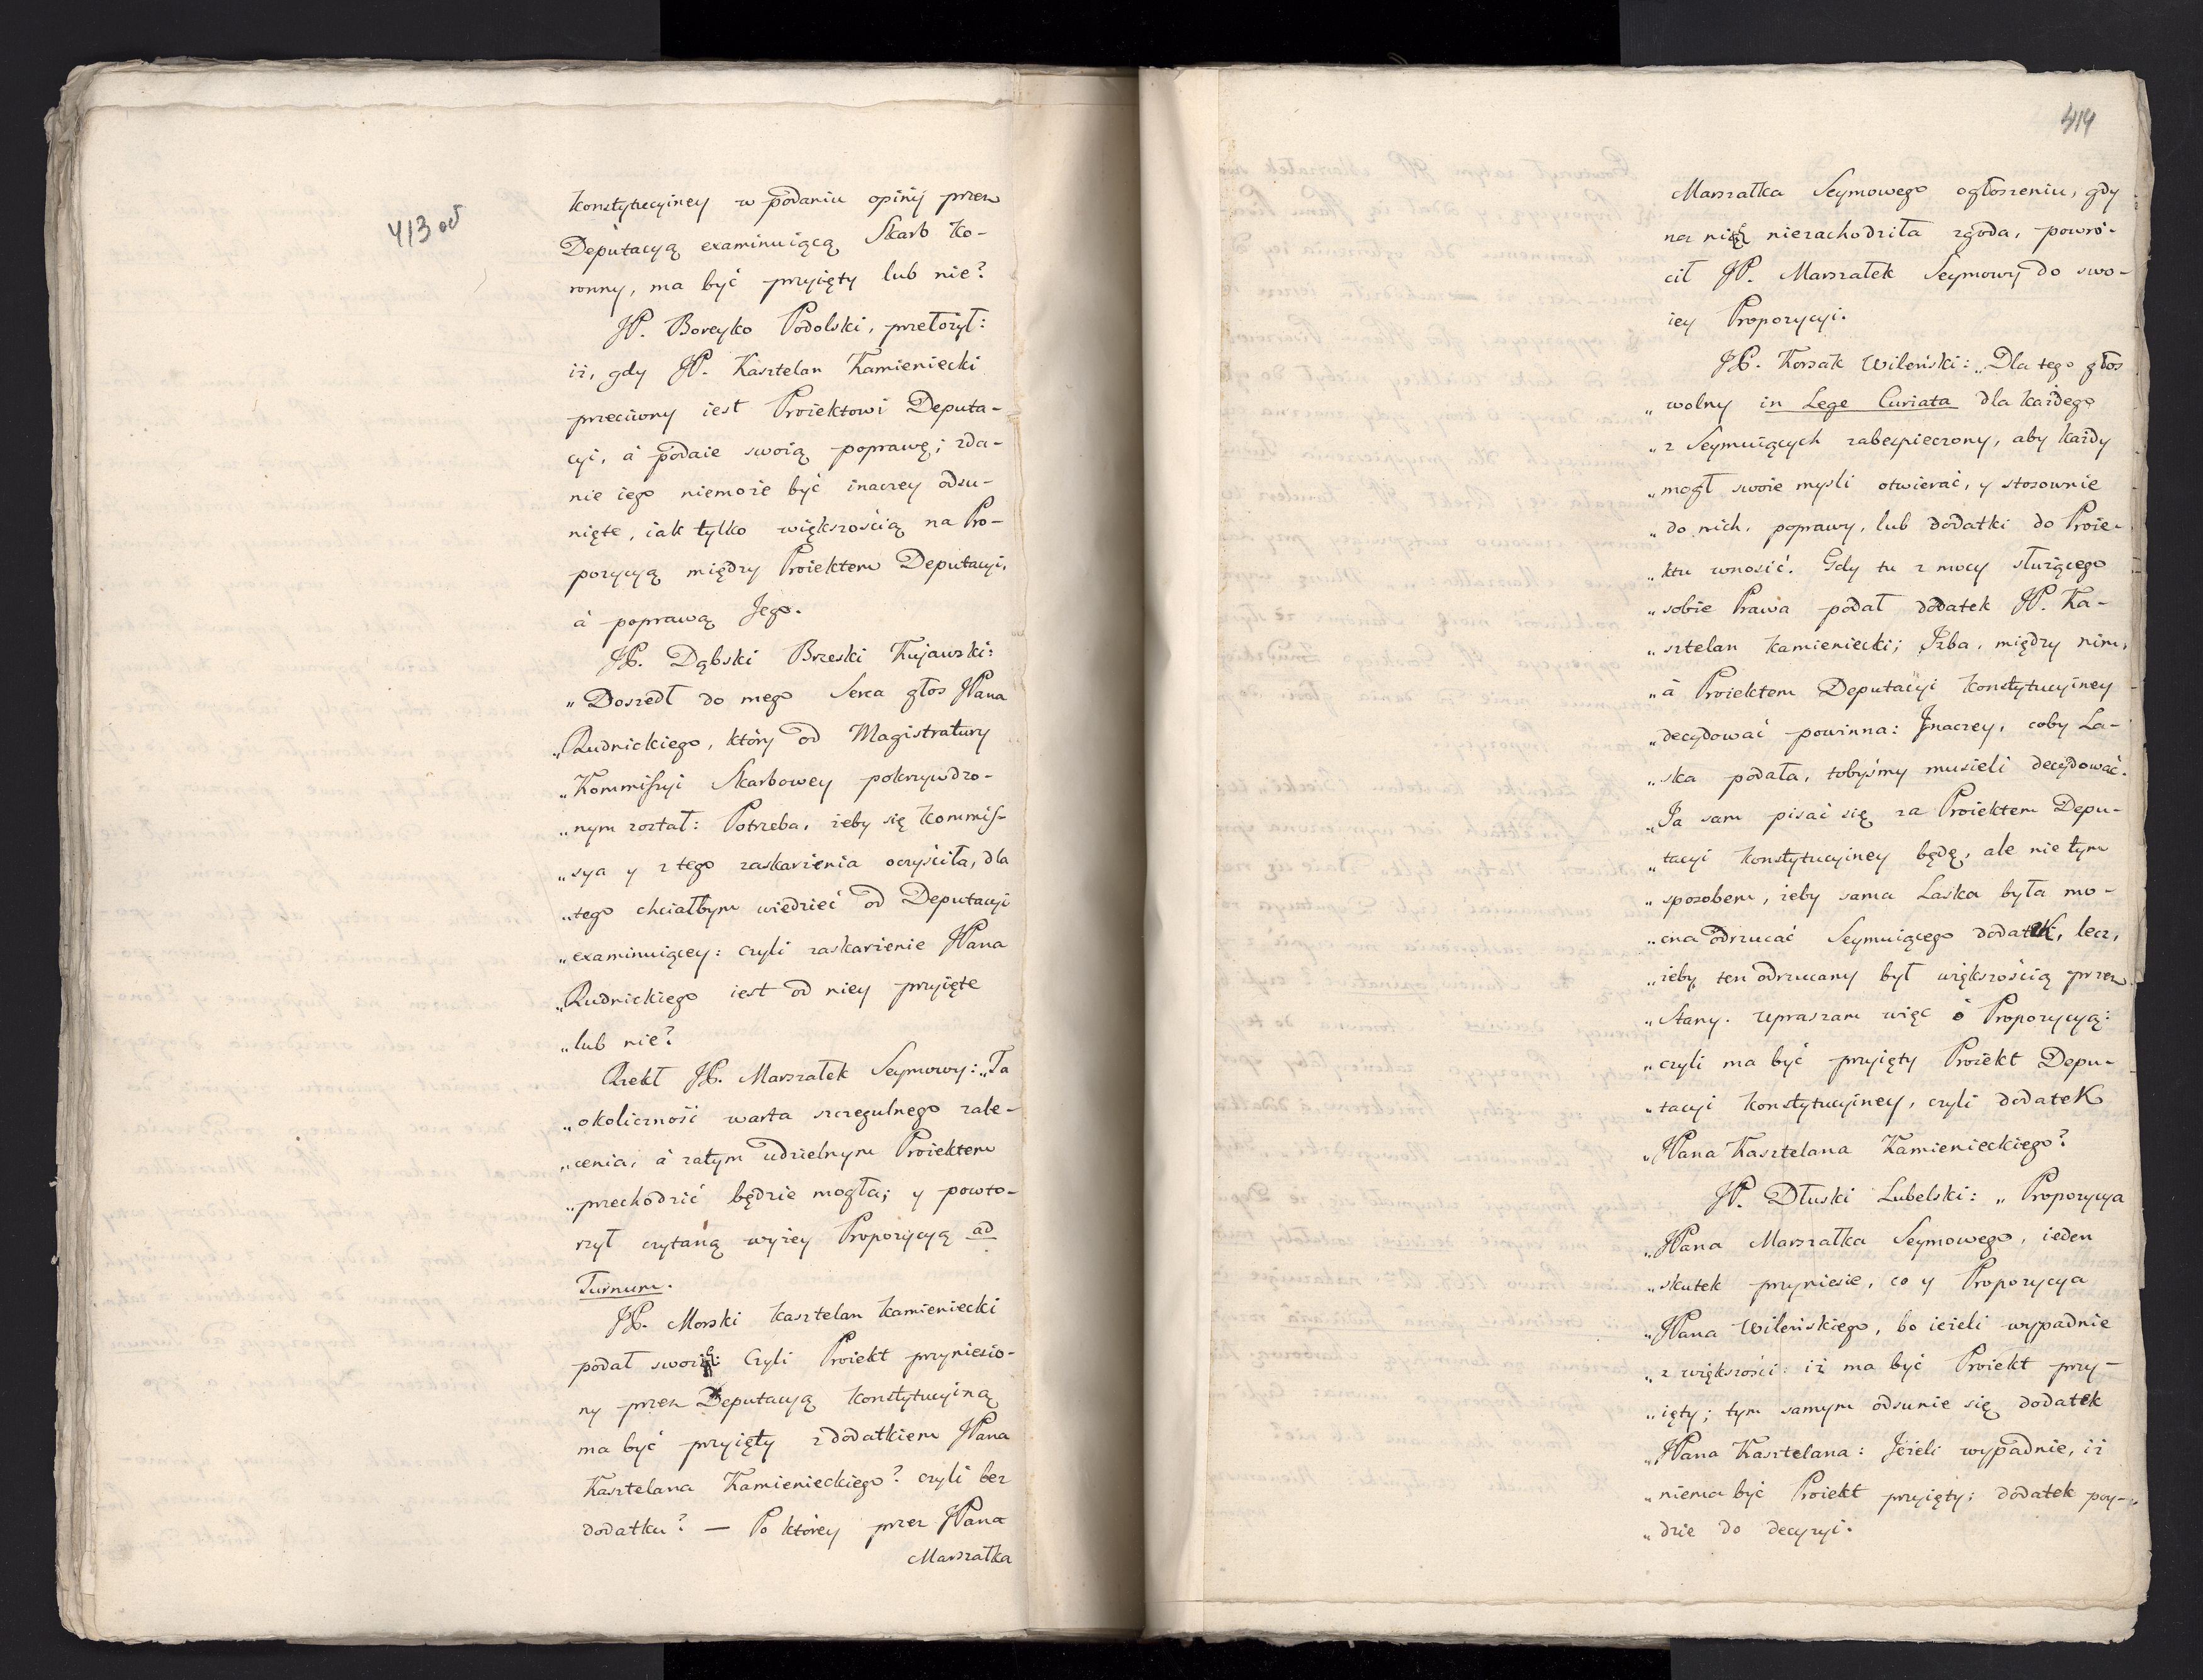 413 od
Konstytucyiney w podaniu opinij przez
Deputacyą examinuiącą Skarb Ko-
ronny, ma być przyięty lub nie?
JP. Boreyko Podolski, przełożył:
iż, gdy JP. Kasztelan Kamieniecki
przeciwny iest Proiektowi Deputa-
cyi, á podaie swoią poprawę; zda-
nie iego niemoże być inaczey odsu-
nięte, iak tylko większością na Pro-
pozycyą między Proiektem Deputacyi,
á poprawą Jego.
JP. Dąbski Brzeski Kujawski:
„Doszedł do mego Serca głos JPana
„Rudnickiego, który od Magistratury
„Kommissyi Skarbowey pokrzywdzo-
„nym został: Potrzeba, żeby się Kommis-
„sya y z tego zaskarżenia oczyściła, dla
„tego chciałbym wiedzieć od Deputacyi
„examinuiącey: czyli zaskarżenie JPana
„Rudnickiego iest od niey przyięte
„lub nie?
Rzekł JP. Marszałek Seymowy: „Ta
„okoliczność warta szczegulnego zale-
„cenia, á zatym udzielnym Proiektem
„przechodzić będzie mogła; y powto-
rzył czytaną wyżey Propozycyą ad
Turnum.
JP. Morski Kasztelan Kamieniecki
podał swoię: Czyli Proiekt przyniesio-
ny przez Deputacyą Konstytucyiną
ma być przyięty z dodatkiem JPana
Kasztelana Kamienieckiego? czyli bez
dodatku? — Po którey przez JPana
Marszałka
414
Marszałka Seymowego ogłoszeniu, gdy
na nię niezachodziła zgoda, powró-
cił JP. Marszałek Seymowy do swo-
iey Propozycyi.
JP. Korsak Wileński: „Dla tego głos
„wolny in Lege Curiata dla każdego
„z Seymuiących zabezpieczony, aby każdy
„mogł swoie mysli otwierać, y stosownie
„do nich, poprawy, lub dodatki do Proie-
„ktu wnosić. Gdy tu z mocy służącego
„sobie Prawa podał dodatek JP. Ka-
„sztelan Kamieniecki; Izba, między nim,
„á Proiektem Deputacyi Konstytucyiney
„decydować powinna: Jnaczey, coby La-
„ska podała, tobyśmy musieli decydować.
„Ja sam pisać się za Proiektem Depu-
„tacyi Konstytucyiney będę, ale nie tym
„sposobem, żeby sama Laska była mo-
„cna odrzucać Seymuiącego dodatek, lecz,
„żeby ten odrzucany był większością przez
„Stany. Upraszam więc ó Propozycyą:
„czyli ma być przyięty Proiekt Depu-
„tacyi Konstytucyiney, czyli dodatek
„JPana Kasztelana Kamienieckiego?
JP. Dłuski Lubelski: „Propozycya
„JPana Marszałka Seymowego, ieden
„skutek przyniesie, co y Propozycya
„JPana Wileńskiego, bo ieżeli wypadnie
„z większości: iż ma być Proiekt przy-
„ięty; tym samym odsunie się dodatek
„JPana Kasztelana: Jeżeli wypadnie, iż
„niema być Proiekt przyięty; dodatek poy-
„dzie do decyzyi.